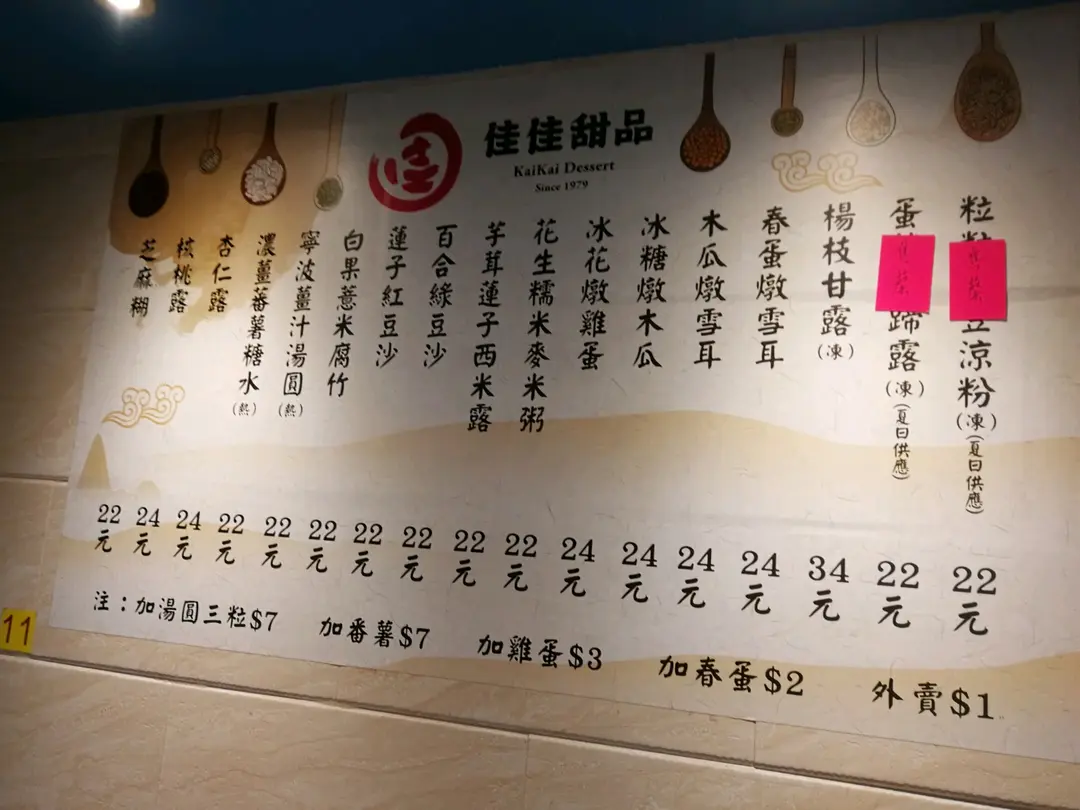 佳佳甜品
KaiKai Dessert
Since 1979
粒 豆涼粉(凍)(夏日供應)
22元
蛋 蹄露(凍)(夏日供應)
22元
楊枝甘露(凍)
34元
春蛋燉雪耳
24元
木瓜燉雪耳
24元
冰糖燉木瓜
24元
冰花燉雞蛋
24元
花生糯米麥米粥
22元
芋茸蓮子西米露
22元
百合綠豆沙
22元
蓮子紅豆沙
22元
白果薏米腐竹
22元
寧波薑汁湯圓(熱)
22元
濃薑番薯糖水(熱)
22元
杏仁露
24元
核桃露
24元
芝麻糊
22元
注：加湯圓三粒$7 加番薯$7 加雞蛋$3 加春蛋$2 外賣$1
11